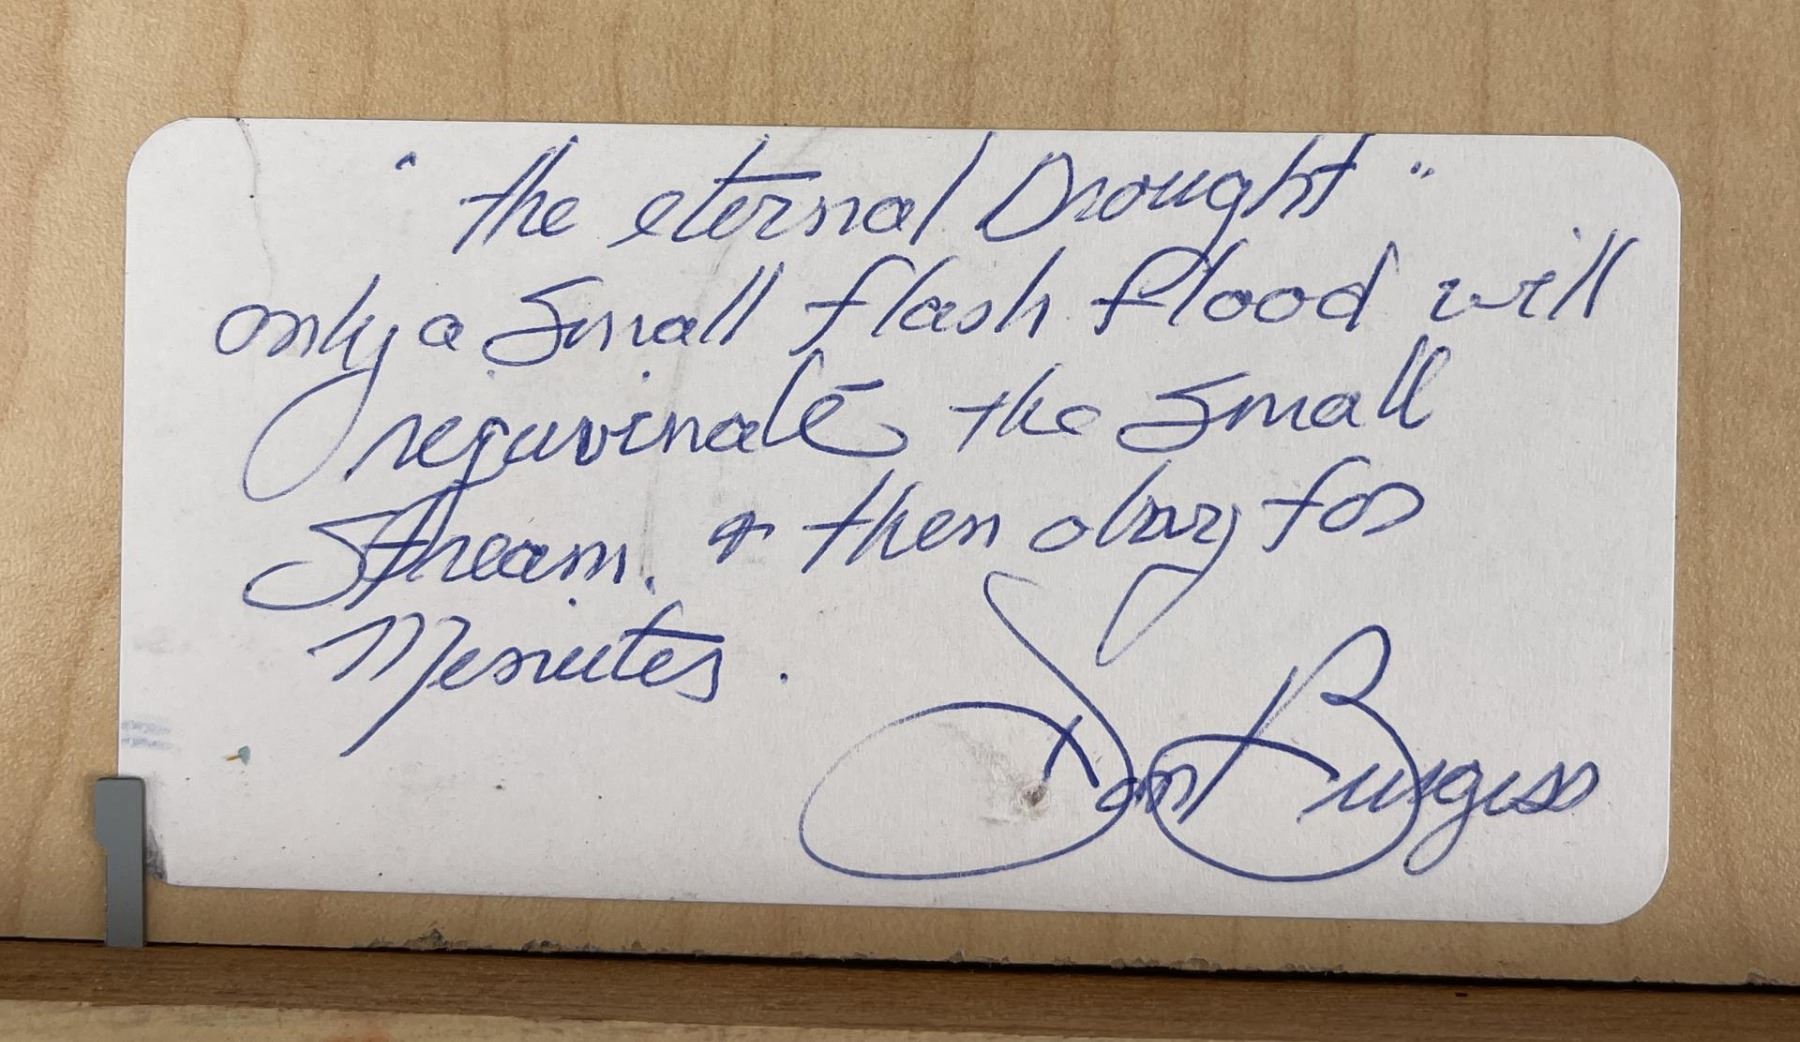 "the eternal Drought"
only a Small flash flood will
rejuvinate the Small
Stream. & then only for
Minutes.
Don Burgess